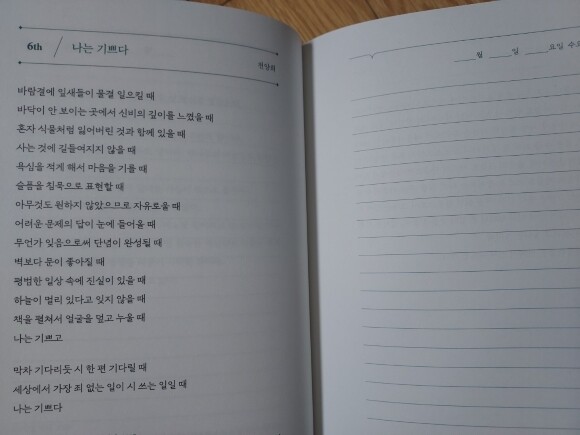 6th / 나는 기쁘다
천양희
바람결에 잎새들이 물결 일으킬 때
바닥이 안 보이는 곳에서 신비의 깊이를 느꼈을 때
혼자 식물처럼 잃어버린 것과 함께 있을 때
사는 것에 길들여지지 않을 때
욕심을 적게 해서 마음을 기를 때
슬픔을 침묵으로 표현할 때
아무것도 원하지 않았으므로 자유로울 때
어려운 문제의 답이 눈에 들어올 때
무언가 잊음으로써 단념이 완성될 때
벽보다 문이 좋아질 때
평범한 일상 속에 진실이 있을 때
하늘이 멀리 있다고 잊지 않을 때
책을 펼쳐서 얼굴을 덮고 누울 때
나는 기쁘고
막차 기다리듯 시 한 편 기다릴 때
세상에서 가장 죄 없는 일이 시 쓰는 일일 때
나는 기쁘다
____월 ____일 ____요일 수요